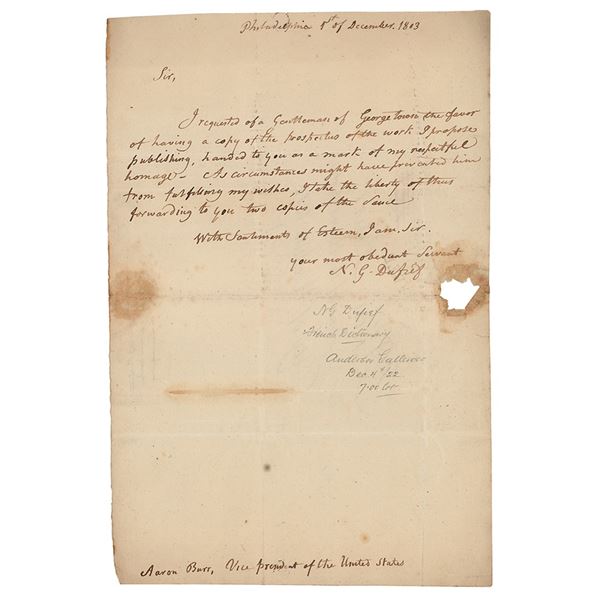 Philadelphia 1st of December. 1803
Sir,
I requested of a Gentleman of Georgetown the favor
of having a copy of the prospectus of the work I propose
publishing, handed to you as a mark of my respectful
homage - As circumstances might have prevented him
from fulfilling my wishes, I take the liberty of thus
forwarding to you two copies of the same
With Sentiments of Esteem, I am, Sir.
your most obedient Servant
N. G. Dufief
N G Dufief
French Dictionary
Anderson
Dec. 4th/22
Aaron Burr, Vice president of the United States